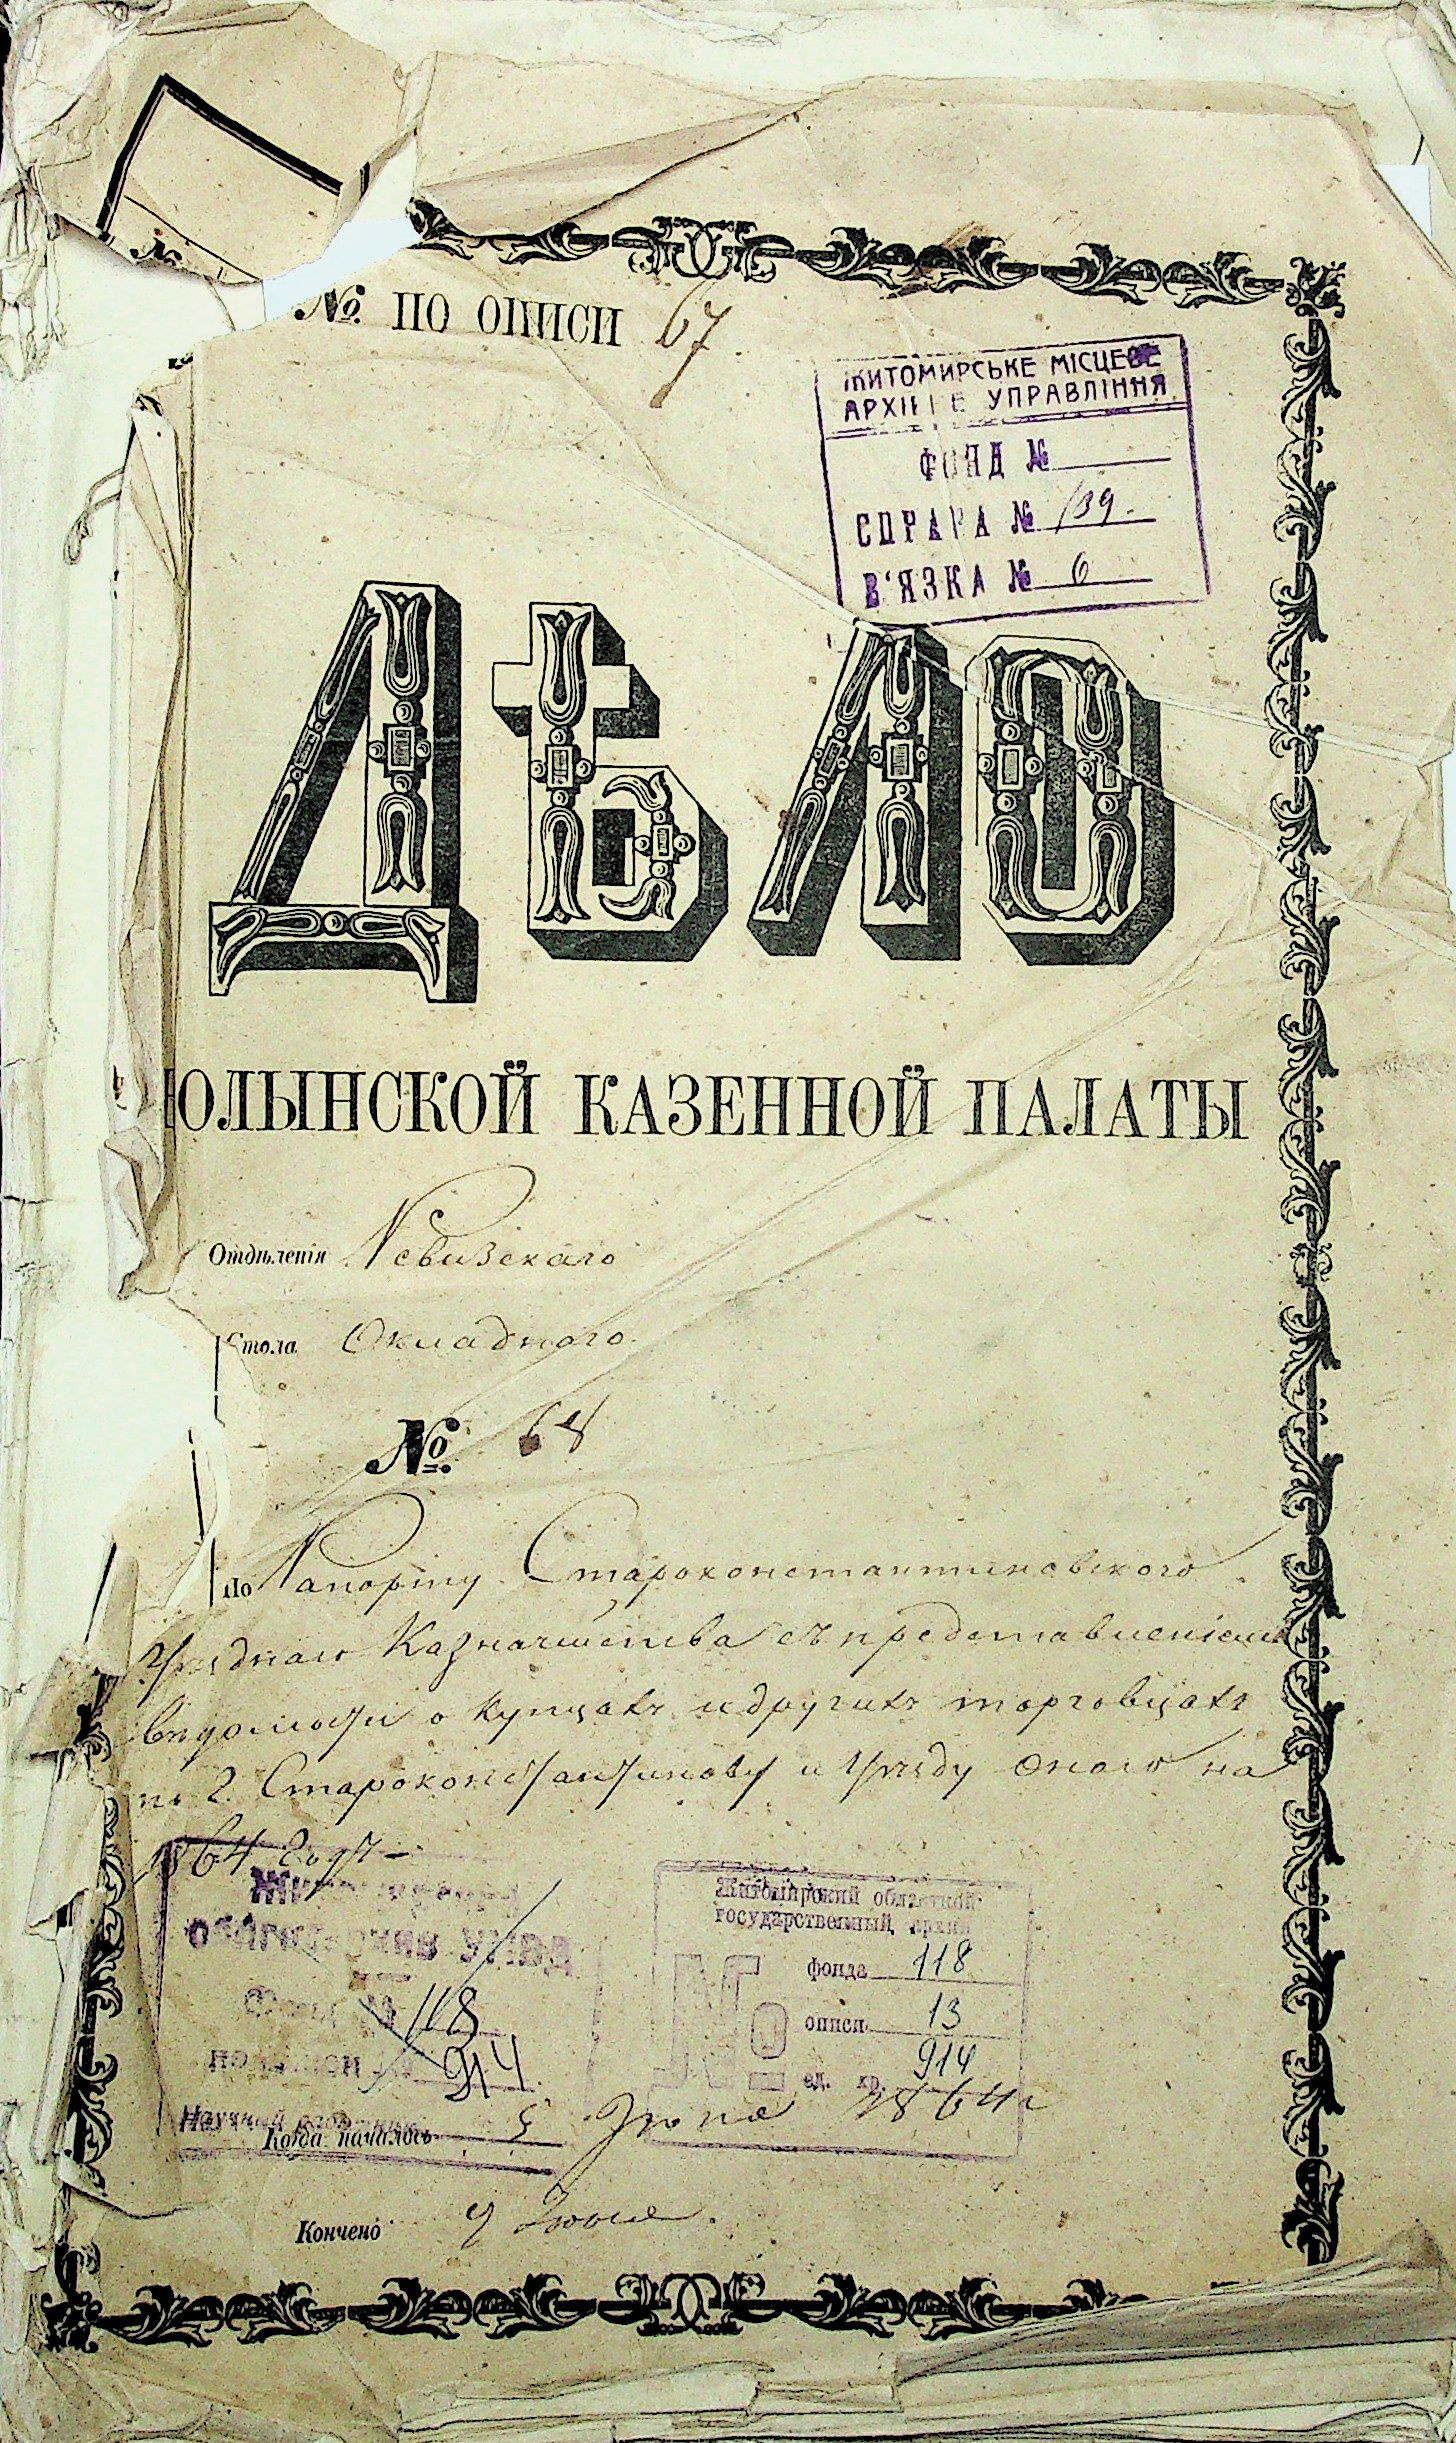 №
№ ПО ОПИСИ 67
ЖИТОМИРСЬКЕ МІСЦЕВЕ
АРХІВНЕ УПРАВЛІННЯ
ФОНД №
СПРАВА № 139.
В'ЯЗКА № 6
ДѢЛО
ВОЛЫНСКОЙ КАЗЕННОЙ ПАЛАТЫ
Отдѣленія Ревизскаго
Стола Окладного.
№ 68
По Рапорту Староконстантиновского
Уѣзднаго Казначейства съ представленіемъ
вѣдомости о купцахъ и другихъ торговцахъ
по г. Староконстантинову и уѣзду оного на
1864 годъ
Житомирский областной
государственный архив
№ фонда 118
описи 13
ед. хр. 914
118
914
Когда началось 5 Іюня 1864 г
Кончено 9 Іюня.